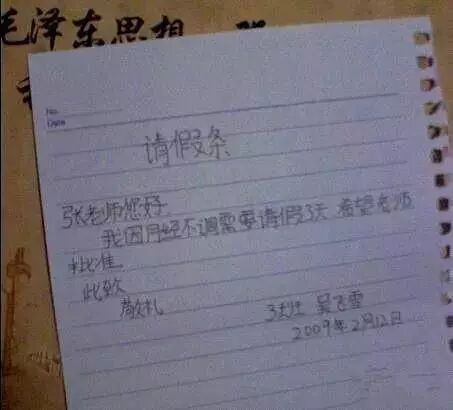 毛泽东思想
No.
Date
请假条
张老师您好
我因月经不调需要请假3天 希望老师
批准
此致
敬礼
吴飞雪
2009年2月12日